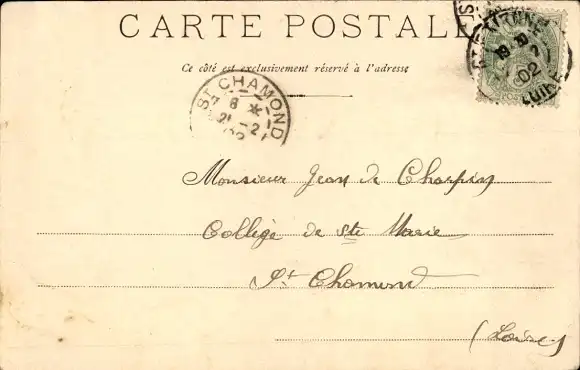 CARTE POSTALE
Ce côté est exclusivement réservé à l'adresse
ST ETIENNE
19 20
2
02
LOIRE
ST CHAMOND
7 8 *
21 - 2
Monsieur Jean de Charpin
Collège de Ste Marie
St. Chamond
(Loire)